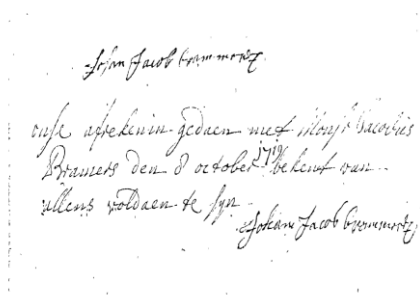 Johan Jacob
onse afrekenin gedaen met Monsr Jacobus
Bramers den 8 october 1719 bekent van
allens voldaen te syn
Johann Jacob